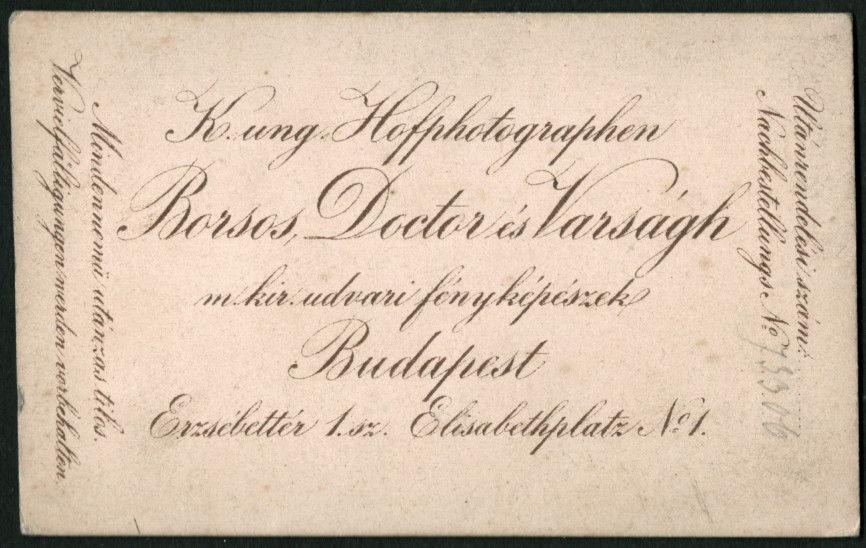 K. ung. Hofphotographen
Borsos, Doctor és Varságh
m. kir. udvari fényképészek
Budapest
Erzsébettér 1. sz. Elisabethplatz No 1.
Mindennemü utánzás tilos.
Vervielfältigungen werden vorbehalten.
Utánrendelési szám:
Nachbestellungs No 73306